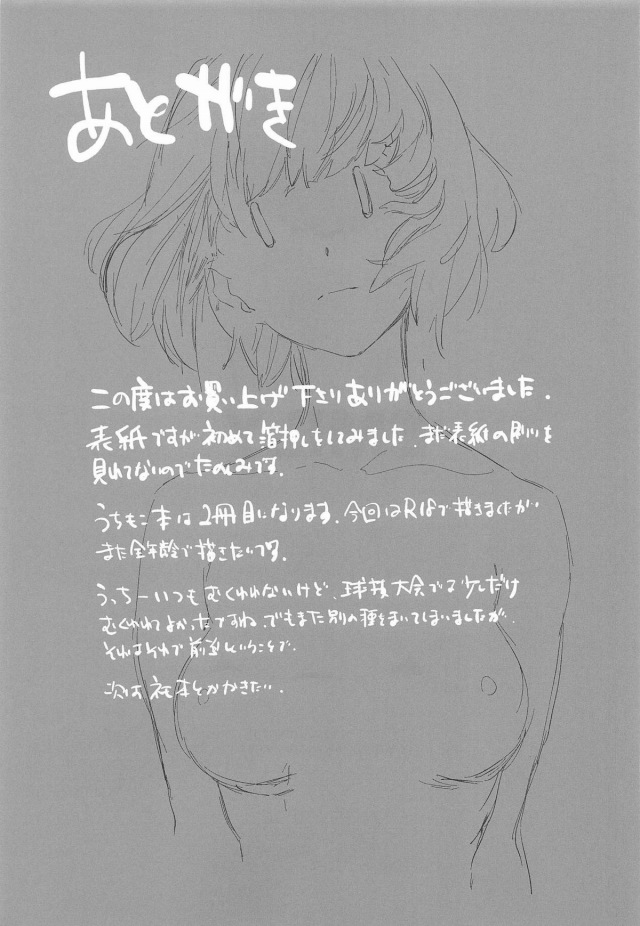 あとがき
この度はお買い上げ下さりありがとうございました.
表紙ですが初めて箔押しをしてみました. まだ表紙の刷りを
見れてないのでたのしみです.
うちもこ本は2冊目になります. 今回はR18で描きましたが
また全年齢で描きたいです.
うっちーいつもむくわれないけど, 球技大会で少しだけ
むくわれてよかったですね. でもまた別の種をまいてしまいましたが,
それはそれで前進ということで.
次はネモ本とかかきたい.